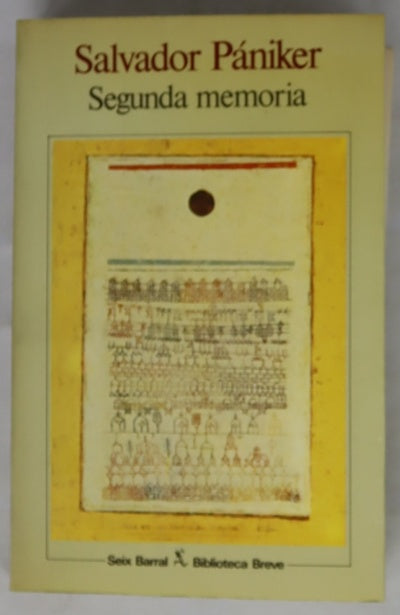 Salvador Pániker
Segunda memoria
Seix Barral Biblioteca Breve